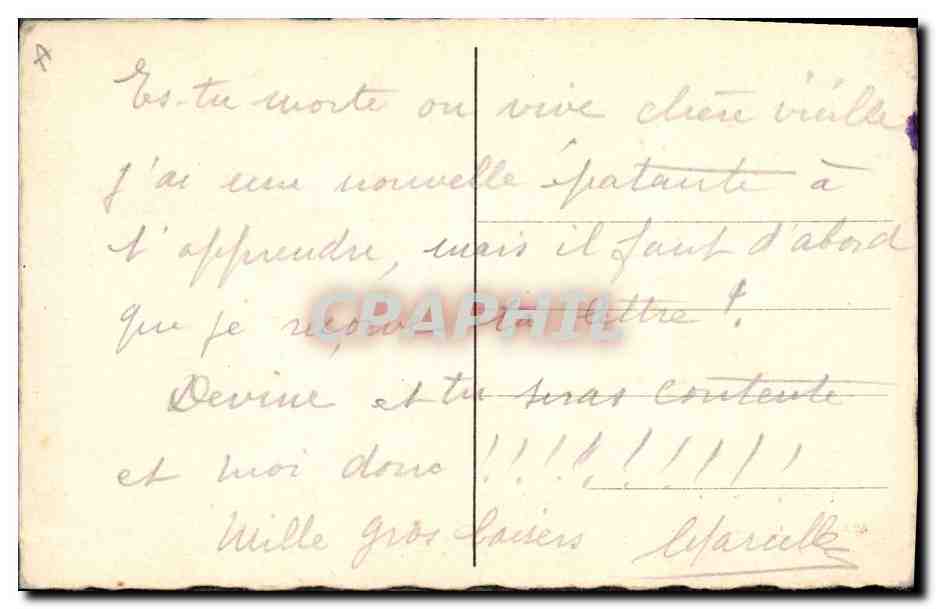 Es-tu morte ou vive chère vieille
j'ai une nouvelle épatante à
t'apprendre, mais il faut d'abord
que je reçoive ta lettre !
Devine et tu seras contente
et moi donc !!!!!!!!!!
Mille gros baisers Marielle
CPAPHIL